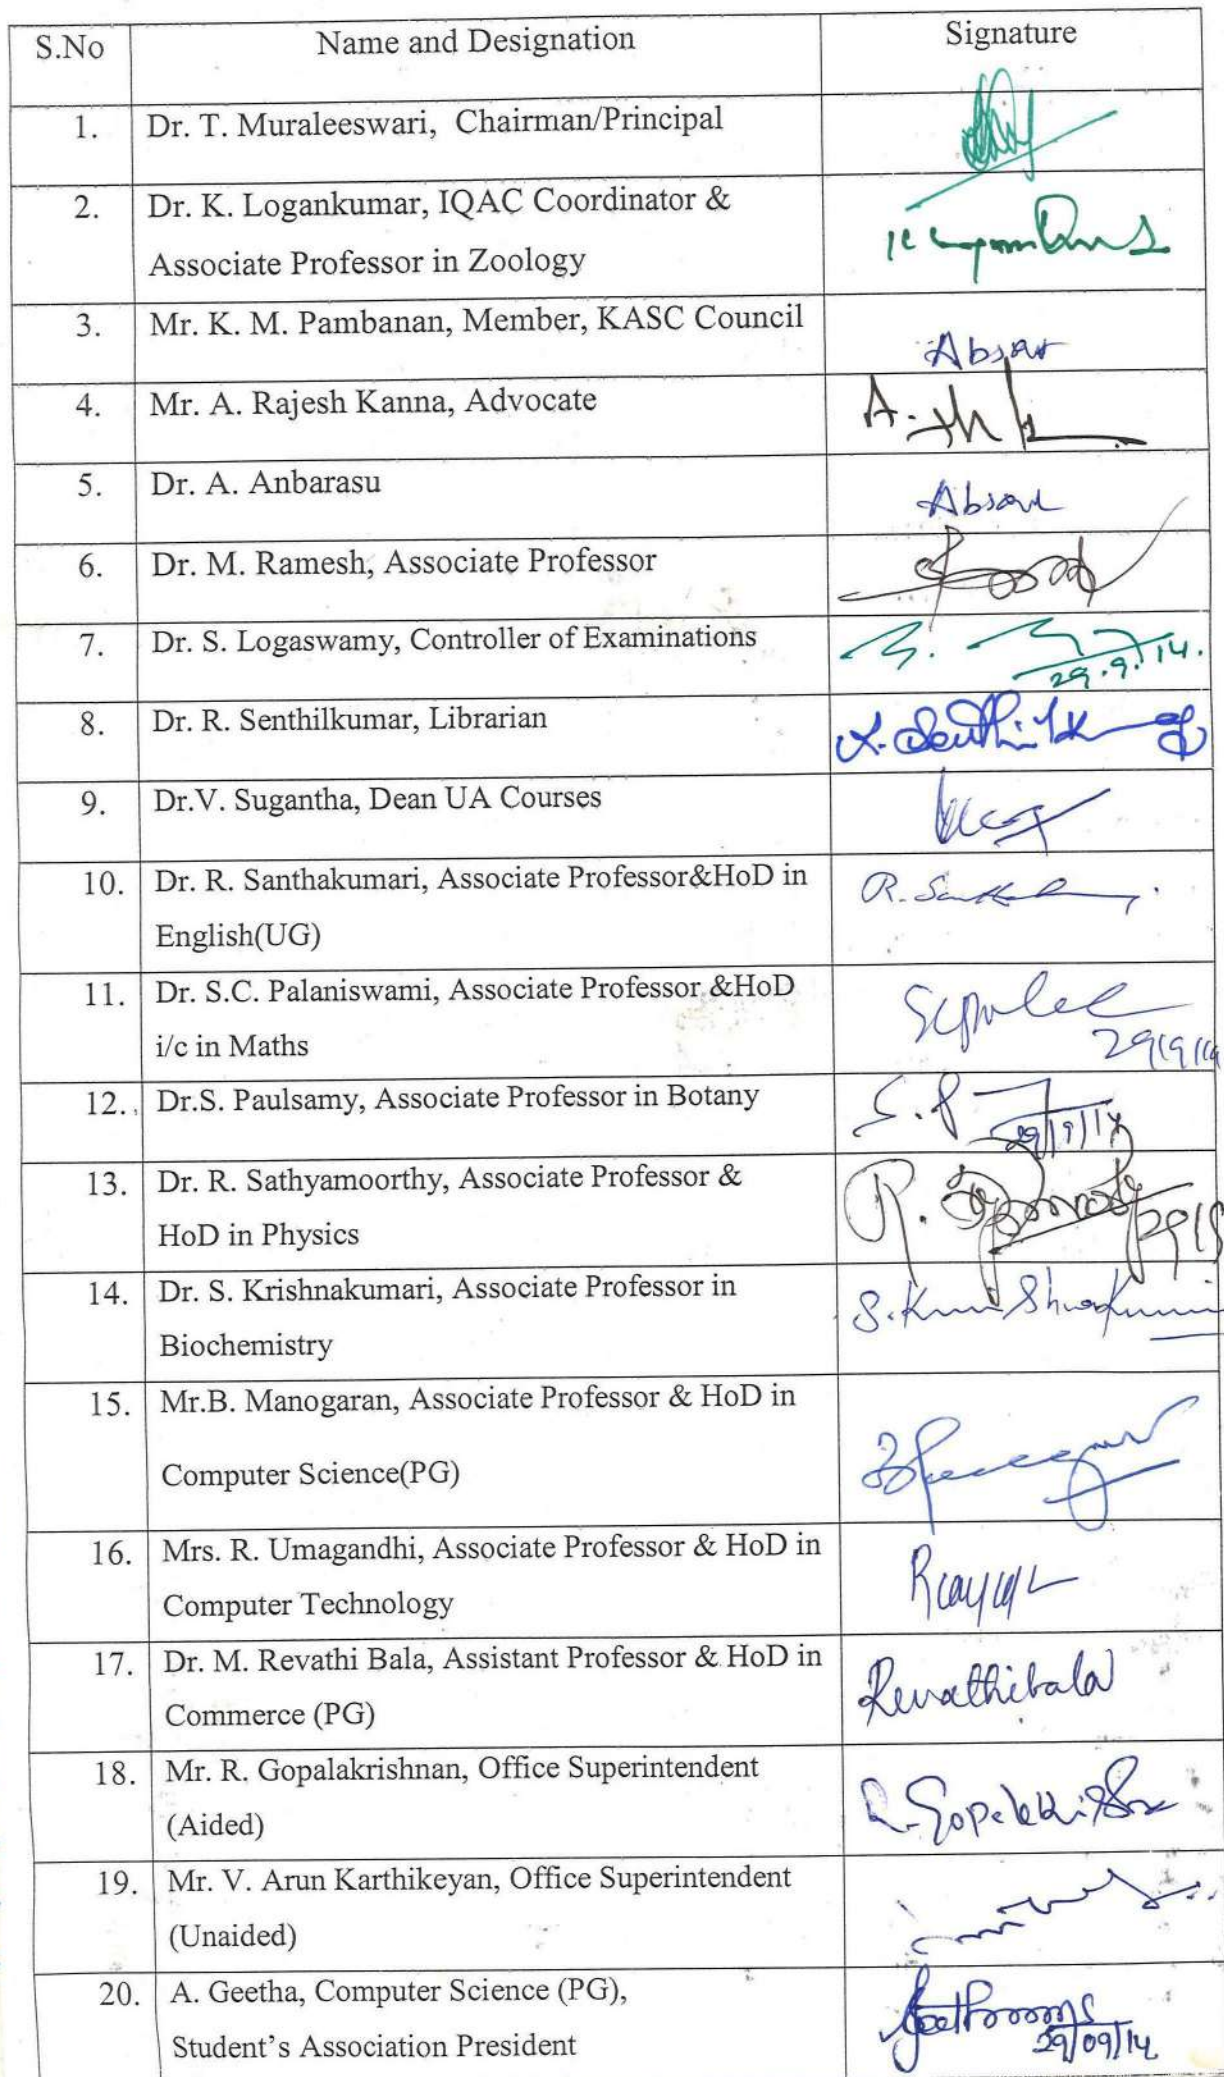 S.No Name and Designation Signature
1. Dr. T. Muraleeswari, Chairman/Principal
2. Dr. K. Logankumar, IQAC Coordinator &
Associate Professor in Zoology
3. Mr. K. M. Pambanan, Member, KASC Council
4. Mr. A. Rajesh Kanna, Advocate
5. Dr. A. Anbarasu
6. Dr. M. Ramesh, Associate Professor
7. Dr. S. Logaswamy, Controller of Examinations
29.9.14.
8. Dr. R. Senthilkumar, Librarian
9. Dr.V. Sugantha, Dean UA Courses
10. Dr. R. Santhakumari, Associate Professor&HoD in
English(UG)
11. Dr. S.C. Palaniswami, Associate Professor &HoD
i/c in Maths
12. Dr.S. Paulsamy, Associate Professor in Botany
29/9/14
13. Dr. R. Sathyamoorthy, Associate Professor &
HoD in Physics
14. Dr. S. Krishnakumari, Associate Professor in
Biochemistry
15. Mr.B. Manogaran, Associate Professor & HoD in
Computer Science(PG)
16. Mrs. R. Umagandhi, Associate Professor & HoD in
Computer Technology
17. Dr. M. Revathi Bala, Assistant Professor & HoD in
Revathibala
Commerce (PG)
18. Mr. R. Gopalakrishnan, Office Superintendent
(Aided)
19. Mr. V. Arun Karthikeyan, Office Superintendent
(Unaided)
20. A. Geetha, Computer Science (PG),
Student's Association President 29/09/14